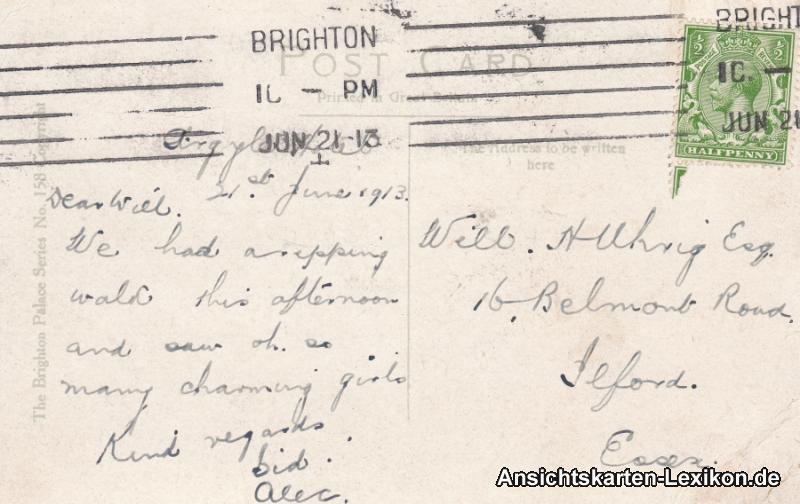 BRIGHTON
10 — PM
JUN 21 13
BRIGHT
10 —
JUN 21
½ ½
HALFPENNY
POST CARD
Printed in Great Britain
The Address to be written
here
The Brighton Palace Series No. 158 Copyright
21st June 1913.
Dear Will.
We had a ripping
walk this afternoon
and saw oh. so
many charming girls
Kind regards.
Sid.
Alec.
Will. H Uhrig Esq.
16, Belmont Road.
Ilford.
Essex.
Ansichtskarten-Lexikon.de